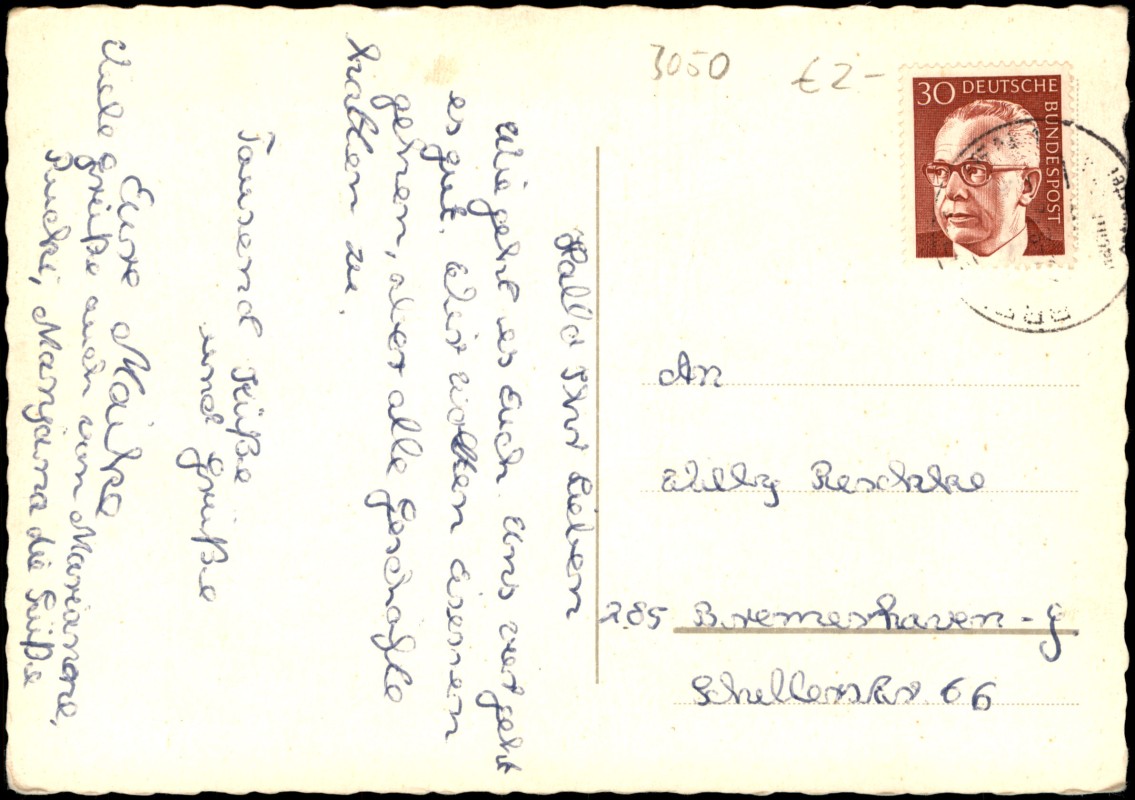 3050
€2-
30 DEUTSCHE BUNDESPOST
Hallo Ihr Lieben
Wie geht es Euch. Uns
geht es gut. Wir wollten
gehen, aber alle Geschäfte
hatten zu.
Tausend Küße
und Grüße
Eure Maike
Viele Grüße auch von Marianne,
Pucki, Manjana die Süße
An
Willy Reschke
285 Bremerhaven-G
Schillerstr. 66